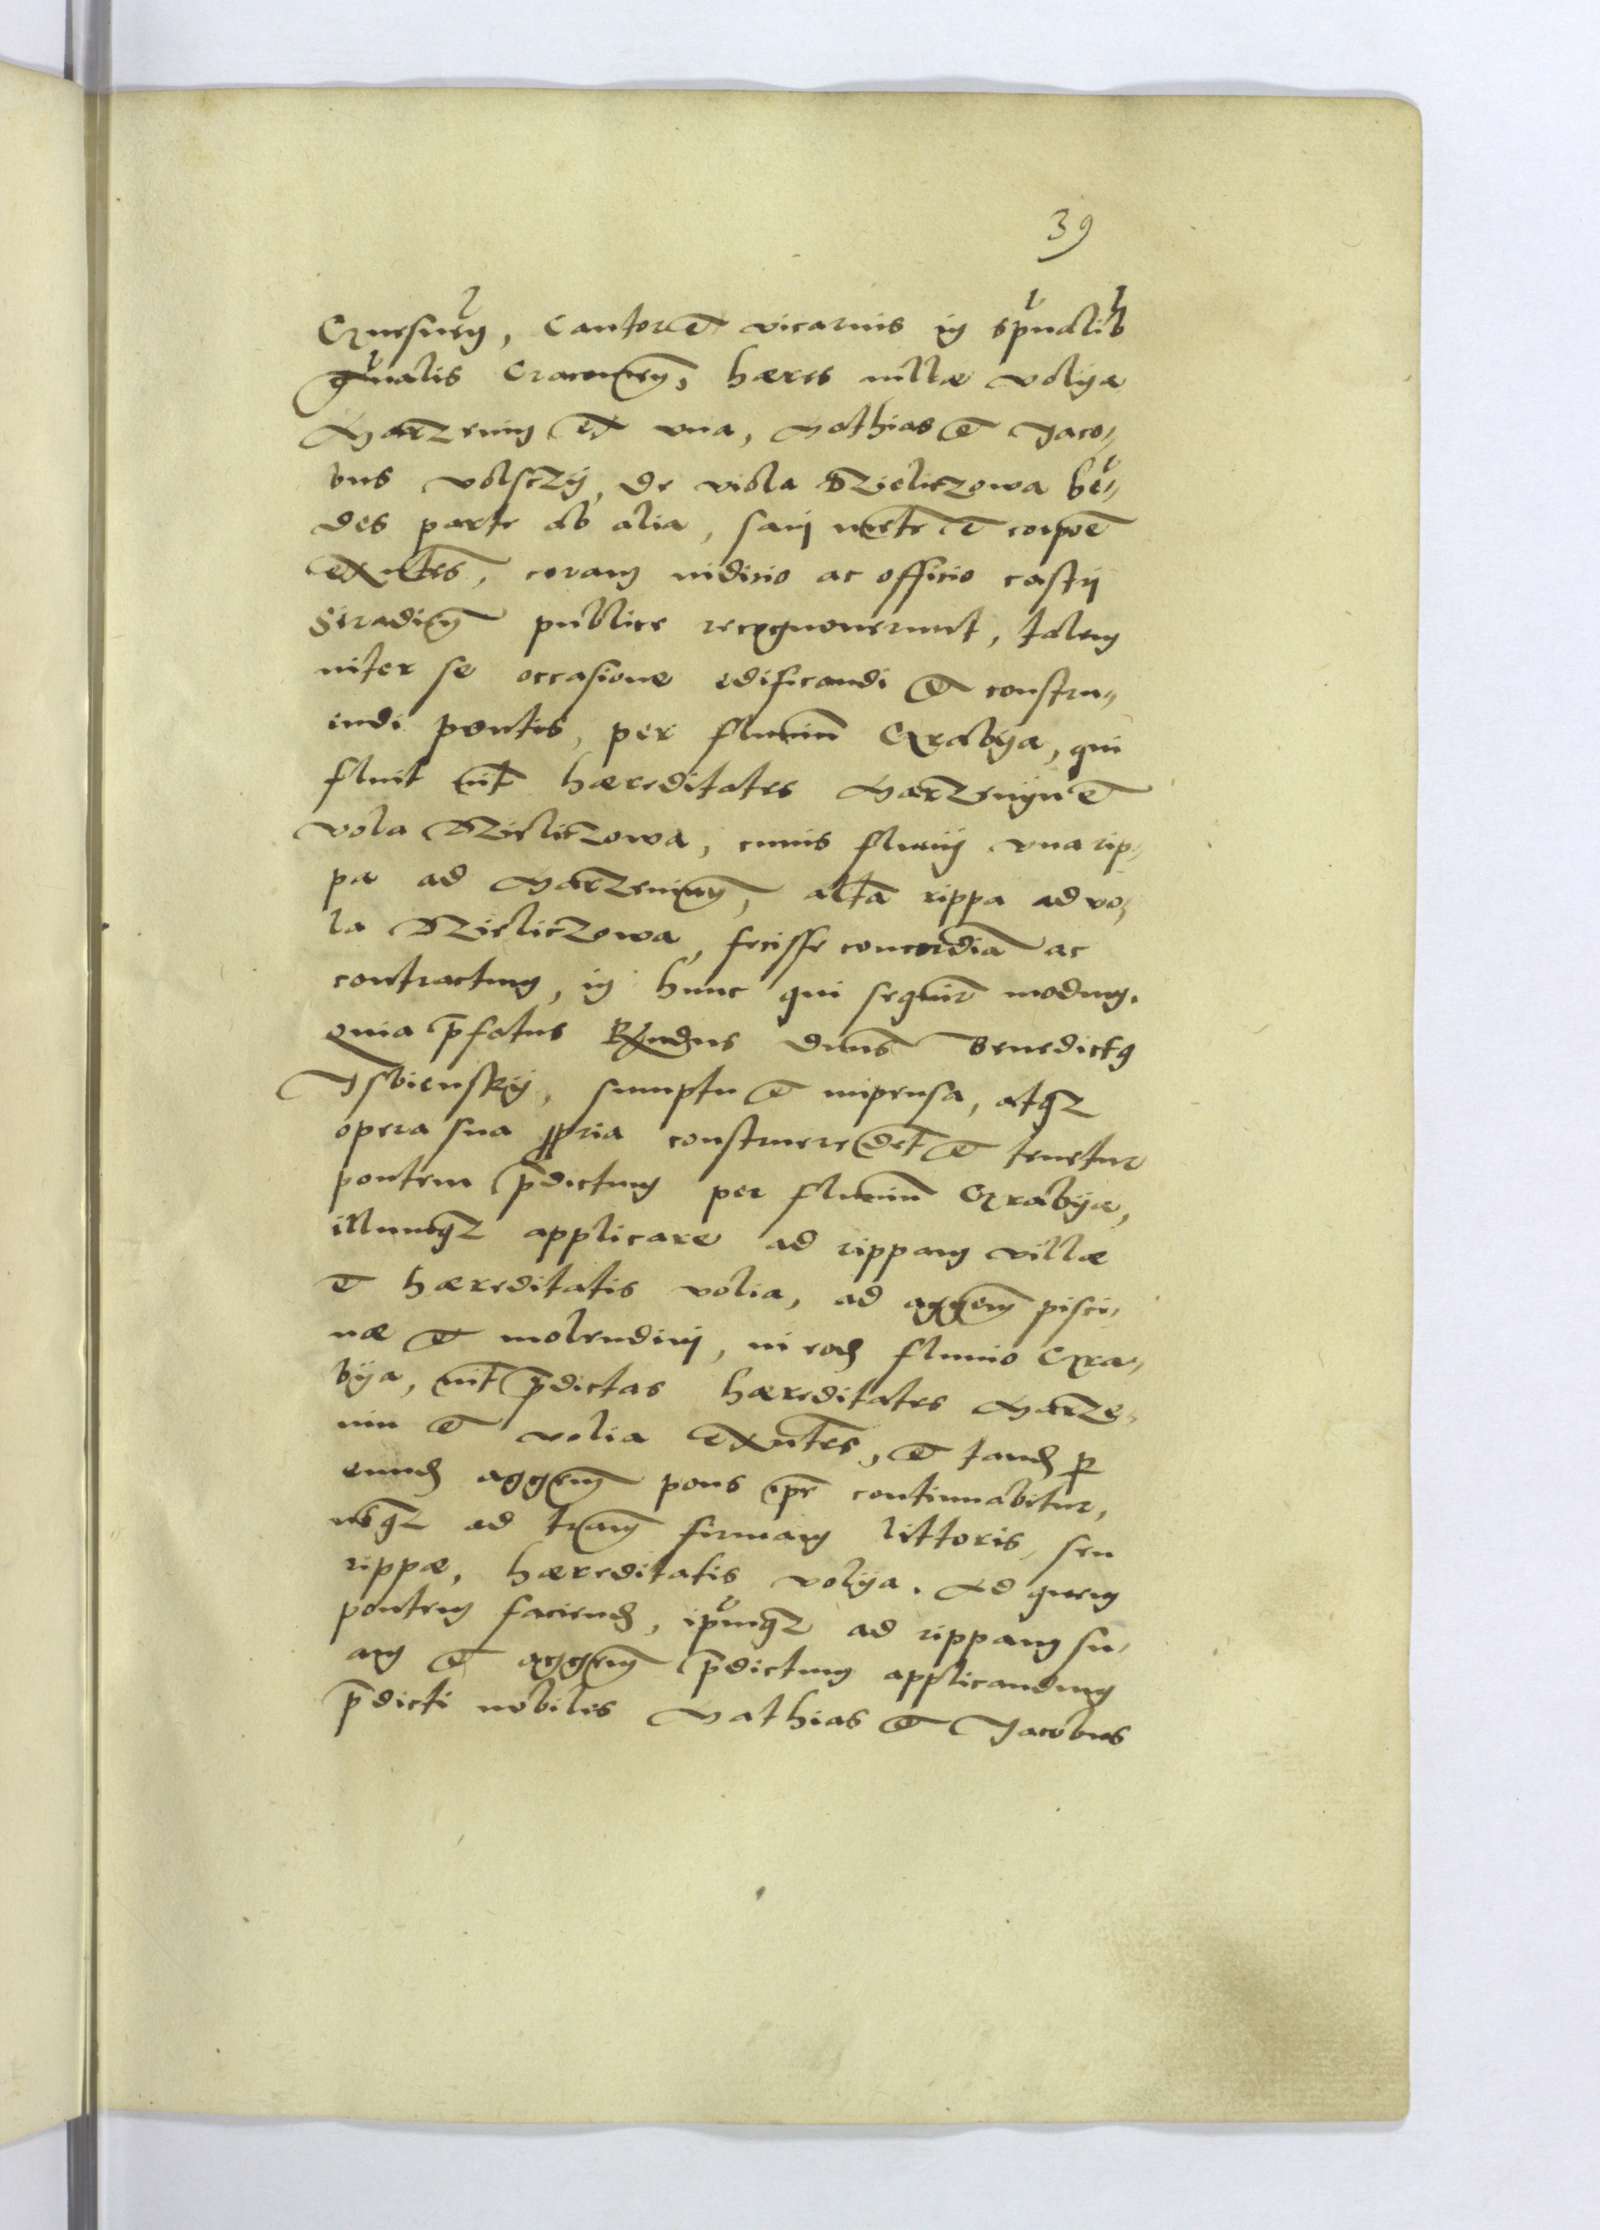 39
Gnesnen, Cantor et vicarius in sp̄ualib
gn̄alis Cracovien, hæres villæ volya
Marzenin ex una, Mathias et Jaco-
bus volsczy, de viola Dzieliczowa hæ-
des parte ab alia, sani mente et corpoe
exn̄tes, coram iudicio ac officio castri
Siradien publice recognoverunt, talem
inter se occasione edificandi et constru-
endi pontis, per fluvium Grabya, qui
fluit int hæreditates Marzenyn et
vola Dzieliczowa, cuius fluvii una rip-
pa ad Marzeninum, altā rippa ad vo-
la Dzieliczowa, fecisse concordiā ac
contractum, in hunc qui sequitr modum.
Quia p̄fatus Rn̄dus dn̄us Benedictq
Isbiensky, sumptu et impensa, atqz
opera sua ꝓpria construere debet et tenetur
pontem p̄dictum per fluvium Grabya,
illumqz applicare ad rippam villæ
et hæreditatis volia, ad aggerem pisci-
næ et molendini, in eod fluvio Gra-
bya, int p̄dictas hæreditates Marze-
nin et volia exn̄tes, et tand p
eund aggerem pons ipse continuabitur,
usqz ad terram firmam littoris, seu
rippæ, hæreditatis volya. Ad quem
pontem faciend, ip̄umqz ad rippam su-
am et aggerem p̄dictum applicandum
p̄dicti nobiles Mathias et Jacobus